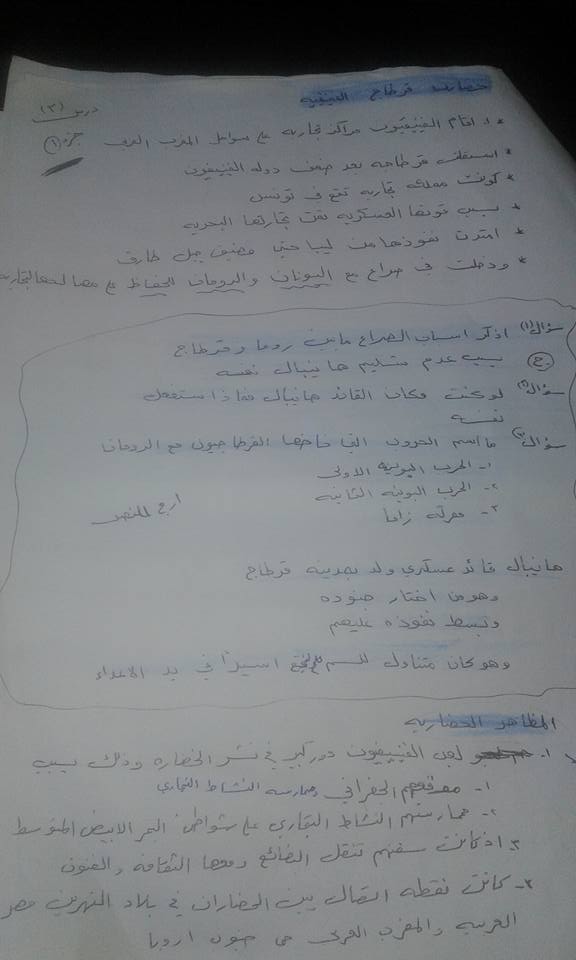 حضارة قرطاج الفينيقيه
درس (٣)
جزء (١)
* ١. اقام الفينيقيون مراكز تجاريه على سواحل المغرب العربي
* استقلت قرطاجه بعد ضعف دولة الفينيقيون
* كونت مملكه تجارية تقع في تونس
* بسبب قوتها العسكريه نمت تجارتها البحريه
* امتدت نفوذها من ليبيا حتى مضيق جبل طارق
* ودخلت في صراع مع اليونان والرومان الحفاظ على مصالحها التجاريه
سؤال (١) اذكر اسباب الصراع مابين روما وقرطاج
ج) بسبب عدم تسليم هانيبال نفسه
سؤال (٢) لو كنت مكان القائد هانيبال فماذا ستفعل
نفسه
سؤال (٣) ما اسم الحروب التي خاضها القرطاجيون مع الرومان
١- الحرب البونيه الاولى
٢- الحرب البونيه الثانيه
٣- معركة زاما
ارجع للنص
هانيبال قائد عسكري ولد بمدينه قرطاج
وهو من اختار جنوده
وبسط نفوذه عليهم
وهو كان متناول للسم اسيراً في يد الاعداء
المظاهر الحضاريه
١- لعبن الفينيقيون دور كبير في نشر الحضاره وذلك بسبب
١- موقعهم الجغرافي وممارسه النشاط التجاري
٢- ممارستهم النشاط التجاري على شواطئ البحر الابيض المتوسط
٣ اذ كانت سفنهم تنقل البضائع ومعها الثقافه والفنون
٣- كانت نقطه اتصال بين الحضاران في بلاد النهرين مصر
العربيه والمغرب العربي جنوب اروبا